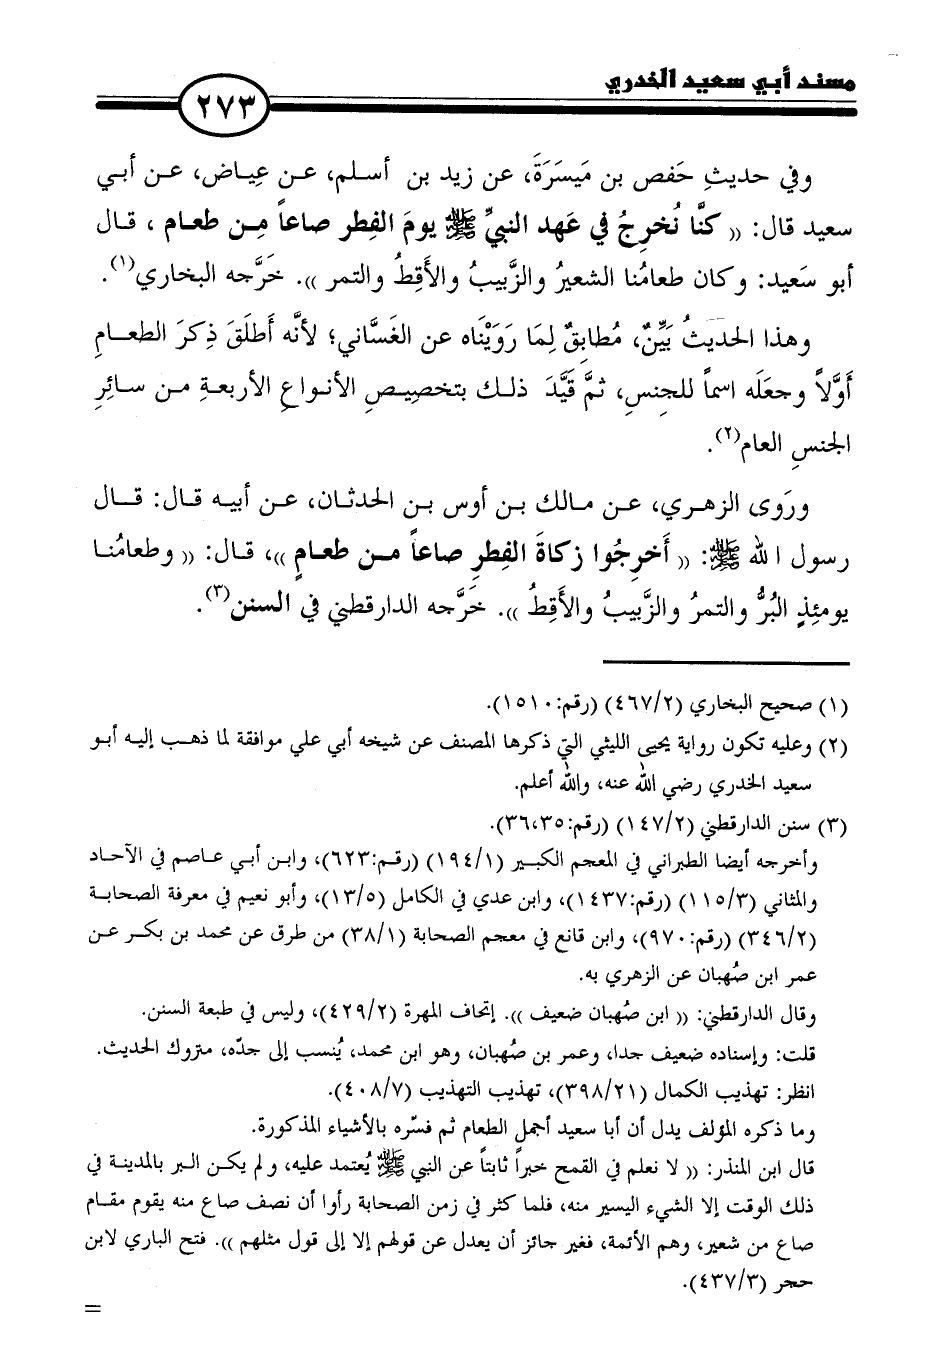 مسند أبي سعيد الخدري
٢٧٣
وفي حديثِ حَفص بن مَيسَرَةَ، عن زيد بن أسلم، عن عِياض، عن أبي
سعيد قال: «كنَّا نُخرِجُ في عَهد النبيِّ ﷺ يومَ الفِطر صاعاً مِن طعام، قال
أبو سَعيد: وكان طعامُنا الشعيرُ والزَّبيبُ والأَقِطُ والتمر». خَرَّجه البخاري(١).
وهذا الحَديثُ بَيِّنٌ، مُطابِقٌ لِمَا رَوَيْنَاه عن الغَسَّاني؛ لأنَّه أَطلَقَ ذِكرَ الطعامِ
أَوَّلاً وجعَلَه اسماً للجِنسِ، ثمَّ قَيَّدَ ذلك بتخصِيصِ الأنواعِ الأربعةِ من سائِرِ
الجنسِ العام(٢).
ورَوى الزهري، عن مالك بن أوس بن الحدثان، عن أبيه قال: قال
رسول الله ﷺ: «أَخرِجُوا زكاةَ الفِطرِ صاعاً من طعامٍ»، قال: «وطعامُنا
يومئِذٍ البُرُّ والتمرُ والزَّبيبُ والأَقِطُ». خَرَّجه الدارقطني في السنن(٣).
(١) صحيح البخاري (٤٦٧/٢) (رقم:١٥١٠).
(٢) وعليه تكون رواية يحيى الليثي التي ذكرها المصنف عن شيخه أبي علي موافقة لما ذهب إليه أبو
سعيد الخدري رضي الله عنه، والله أعلم.
(٣) سنن الدارقطني (١٤٧/٢) (رقم:٣٦،٣٥).
وأخرجه أيضا الطبراني في المعجم الكبير (١٩٤/١) (رقم:٦٢٣)، وابن أبي عاصم في الآحاد
والمثاني (١١٥/٣) (رقم:١٤٣٧)، وابن عدي في الكامل (١٣/٥)، وأبو نعيم في معرفة الصحابة
(٣٤٦/٢) (رقم:٩٧٠)، وابن قانع في معجم الصحابة (٣٨/١) من طرق عن محمد بن بكر عن
عمر ابن صُهبان عن الزهري به.
وقال الدارقطني: «ابن صُهبان ضعيف». إتحاف المهرة (٤٢٩/٢)، وليس في طبعة السنن.
قلت: وإسناده ضعيف جدا، وعمر بن صُهبان، وهو ابن محمد، يُنسب إلى جدّه، متروك الحديث.
انظر: تهذيب الكمال (٣٩٨/٢١)، تهذيب التهذيب (٤٠٨/٧).
وما ذكره المؤلف يدل أن أبا سعيد أجمل الطعام ثم فسّره بالأشياء المذكورة.
قال ابن المنذر: «لا نعلم في القمح خبراً ثابتاً عن النبي ﷺ يُعتمد عليه، ولم يكن البر بالمدينة في
ذلك الوقت إلا الشيء اليسير منه، فلما كثر في زمن الصحابة رأوا أن نصف صاع منه يقوم مقام
صاع من شعير، وهم الأئمة، فغير جائز أن يعدل عن قولهم إلا إلى قول مثلهم». فتح الباري لابن
حجر (٤٣٧/٣).
=